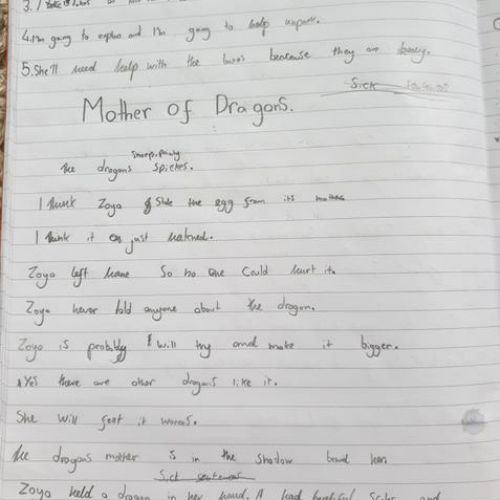 3. I
4. I'm going to explore and I'm going to help unpack.
5. She'll need help with the boxes bencause they are heavy.
Sick
Mother of Dragons.
Sharp, pointy
the dragons spickes.
I think Zoya Stole the egg from its mother
I think it just hatched.
Zoya left home So no one Could hurt it.
Zoya never told anyone about the dragon.
Zoya is probably will try and make it bigger.
Yes there are other dragons like it.
She will feat it worms.
the dragons mother is in the Shadow
Sick sentences
Zoya held a dragon in her hand. A had beautiful Scales and